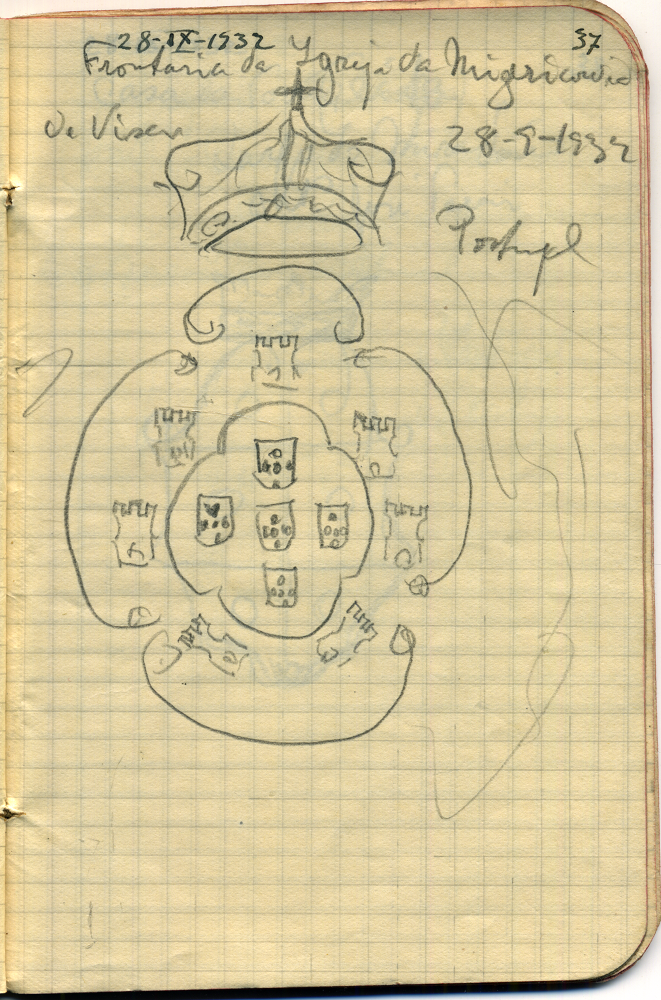 28-IX-1932
37
Frontaria da Ygreja da Misericordia
de Viseu
28-9-1932
Portugal